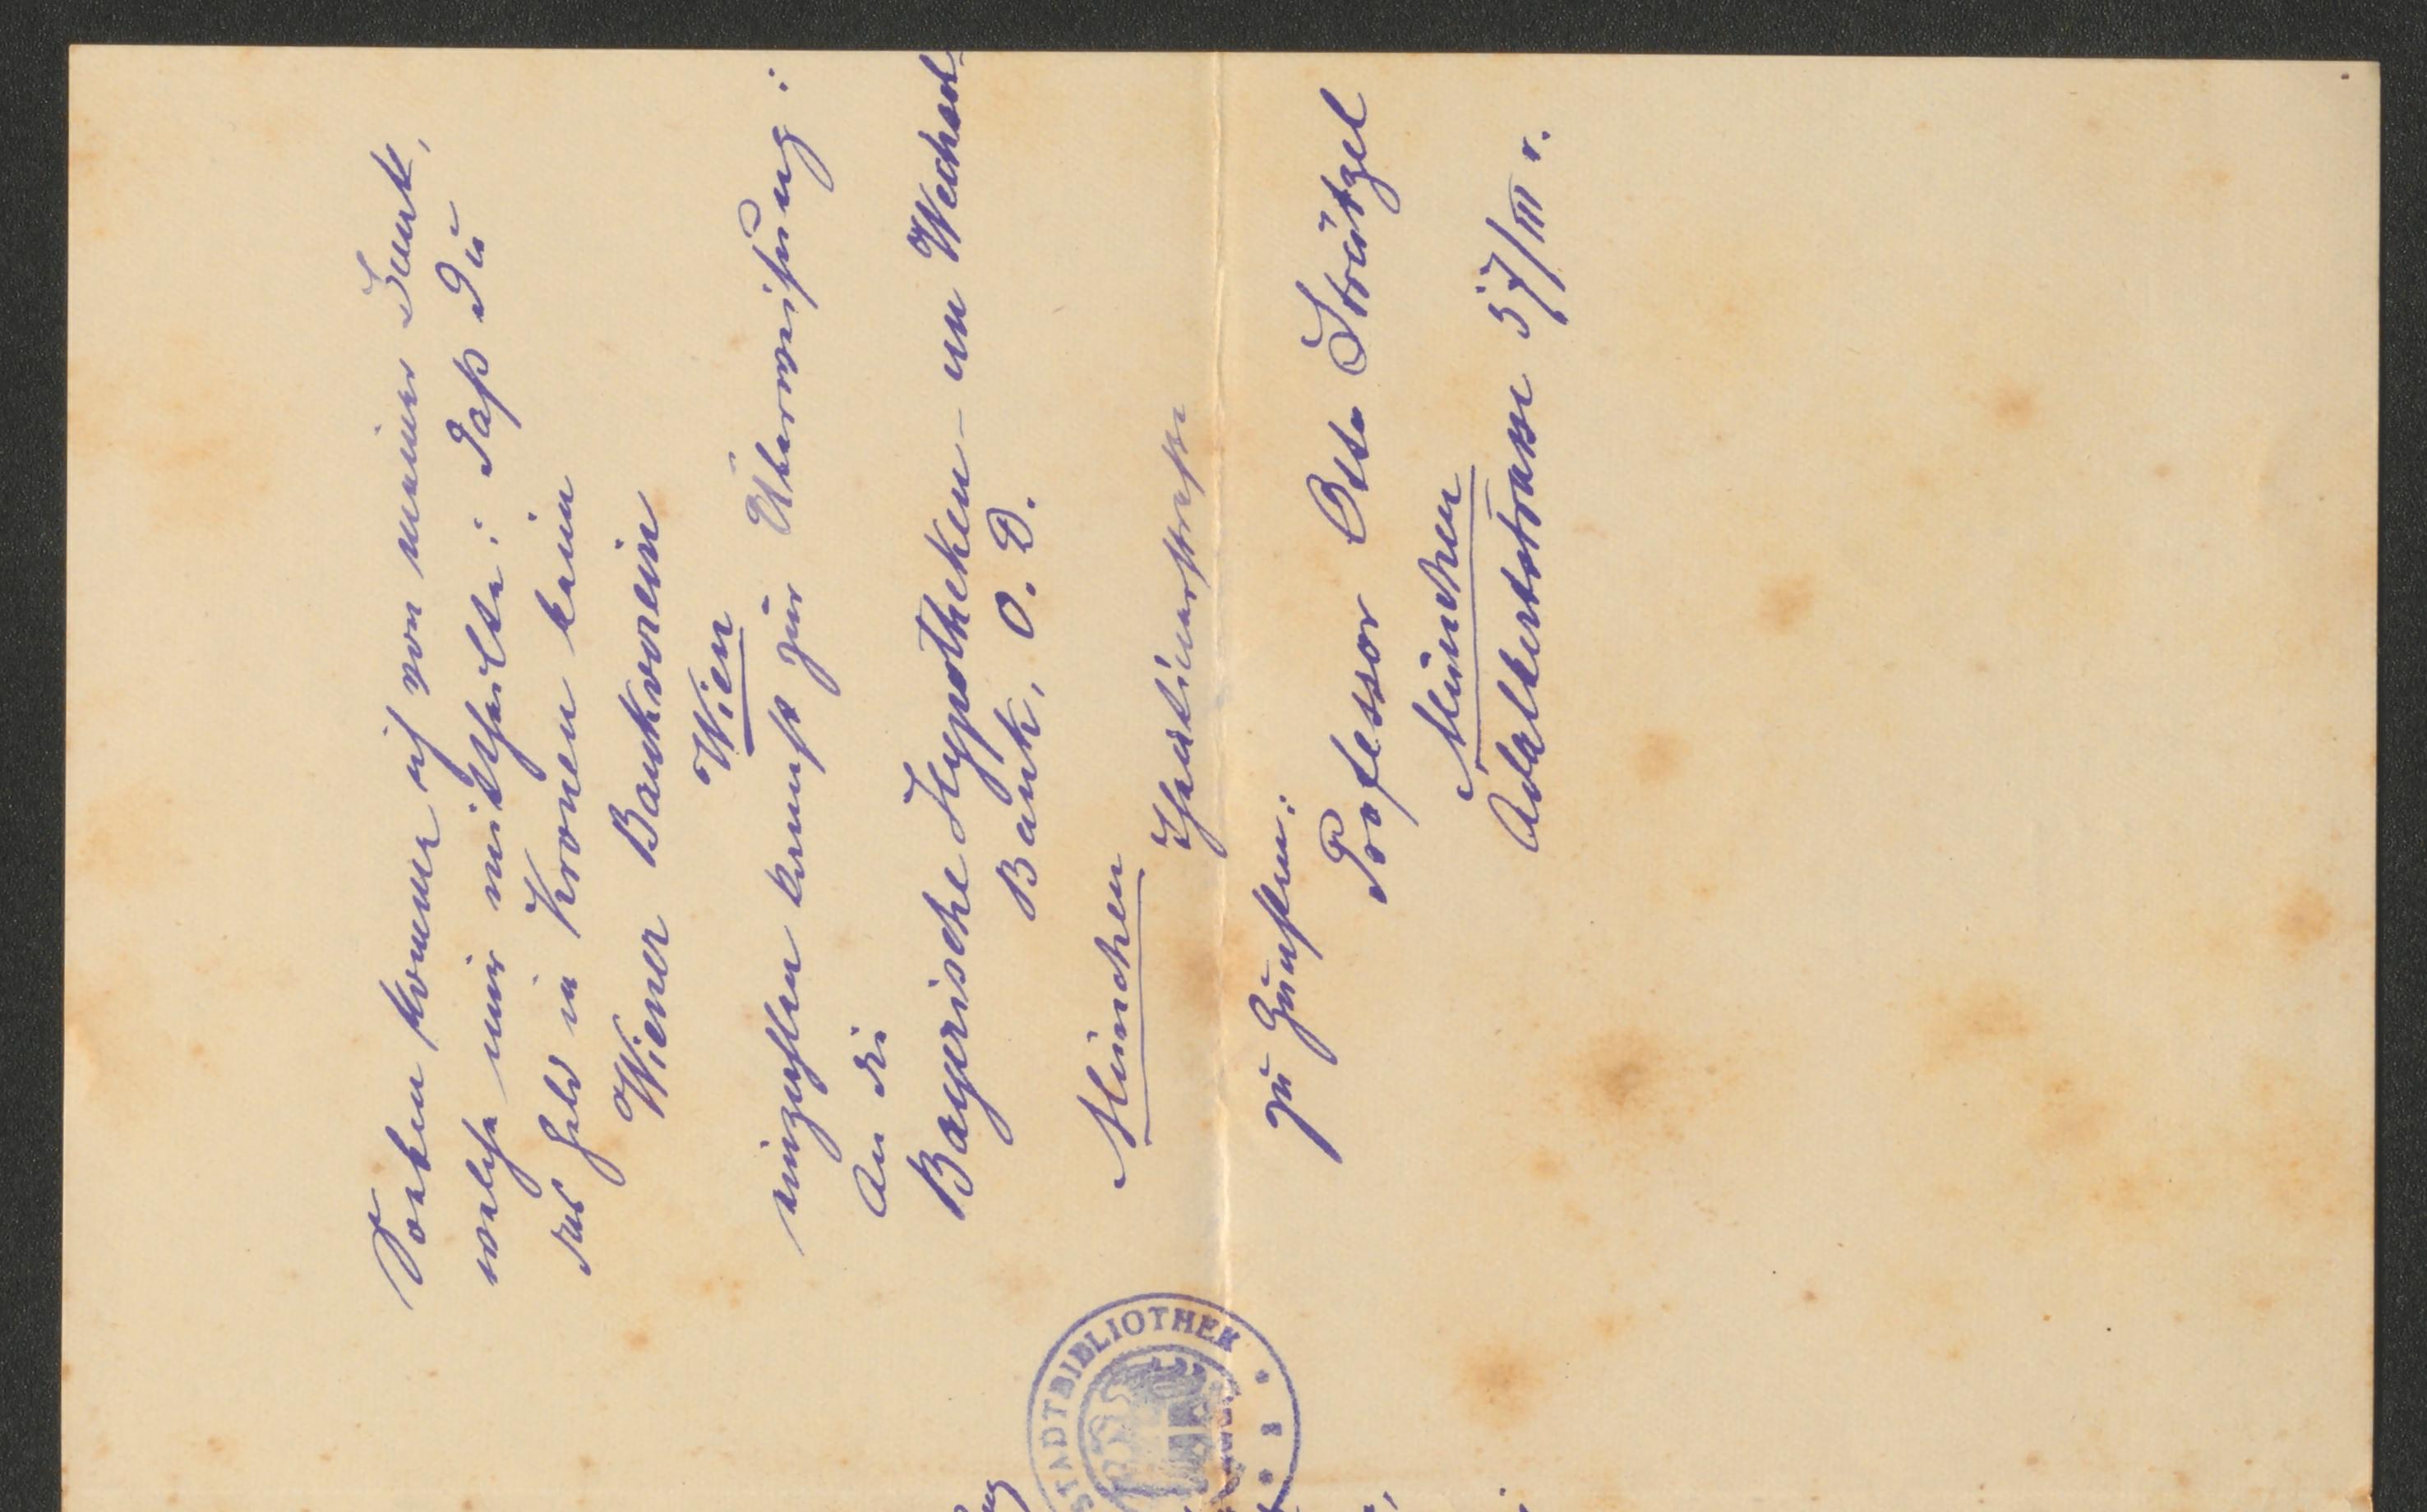 Soeben komme ich von meiner Bank,
welche mir mittheilte: daß Du
das Geld in Kronen beim
Wiener Bankverein
Wien
einzahlen kannst zur Überweisung:
An die
Bayerische Hypotheken- un Wechsel-
Bank, O. D.
München
Theatinerstraße
zu Gunsten:
Professor Otto Strützel
München
Adalbertstrasse 57/III r.
STADTBIBLIOTHEK